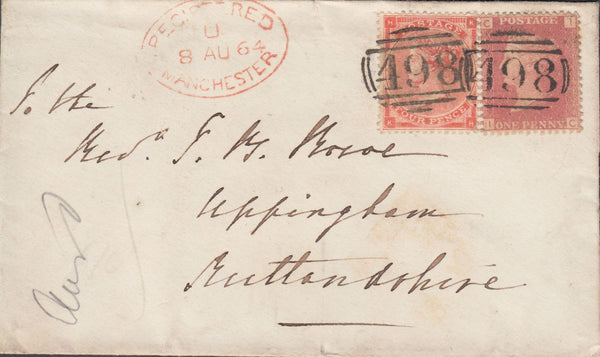 REGISTERED
U
8 AU 64
MANCHESTER
POSTAGE
FOUR PENCE
H K
K H
498
POSTAGE
ONE PENNY
C I
I C
498
To the
Revd. T. B. Rowe
Uppingham
Rutlandshire